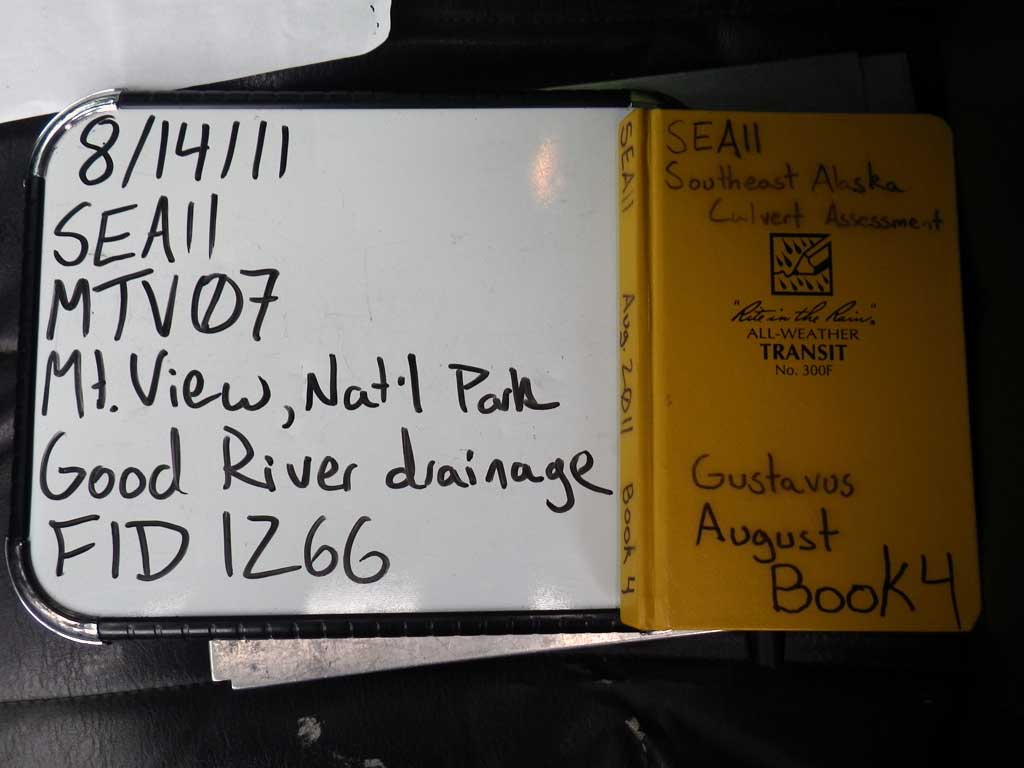 8/14/11
SEA11
MTV07
Mt. View, Nat'l Park
Good River drainage
FID 1266
SEA11 Aug. 2011 Book 4
SEA11
Southeast Alaska
Culvert Assessment
"Rite in the Rain"®
ALL-WEATHER
TRANSIT
No. 300F
Gustavus
August
Book 4